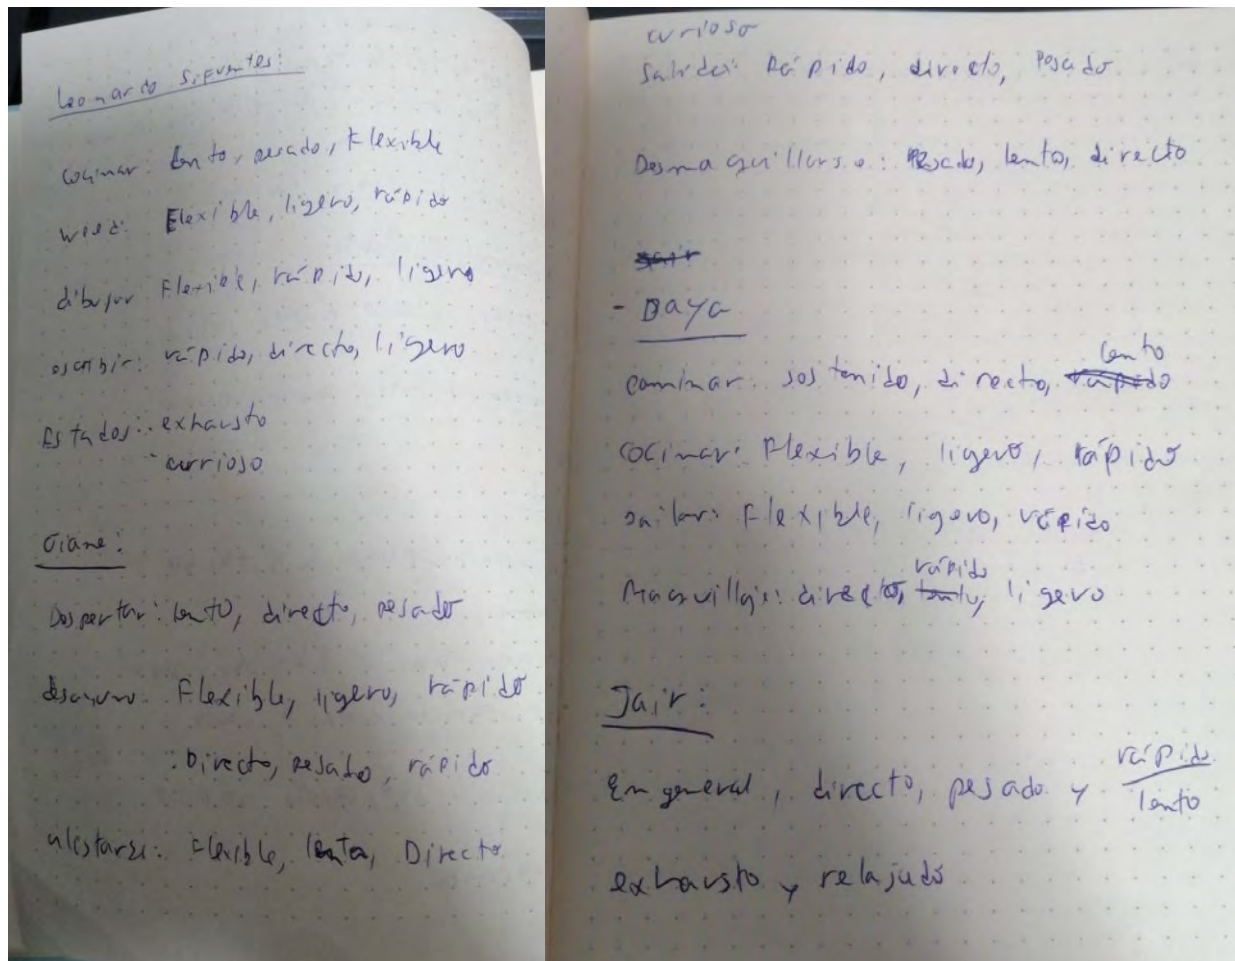 Leonardo Sifuentes:
cocinar: lento, pesado, Flexible
weed: Flexible, ligero, rápido
dibujar Flexible, rápido, ligero
escribir: rápido, directo, ligero
Estados: exhausto
curioso
Despertar: lento, directo, pesado
desayuno: Flexible, ligero, rápido
: Directo, pesado, rápido
Flexible, lenta, Directo
curioso
Salida: Rápido, directo, Pesado
Desmaquillarse: Pesado, lento, directo
Jair
- Daya
lento
caminar: sostenido, directo, rápido
cocinar: Flexible, ligero, rápido
bailar: Flexible, ligero, rápido
rápido
Maquillaje: directo, lento, ligero
Jair:
En general, directo, pesado y rápido
lento
exhausto y relajado